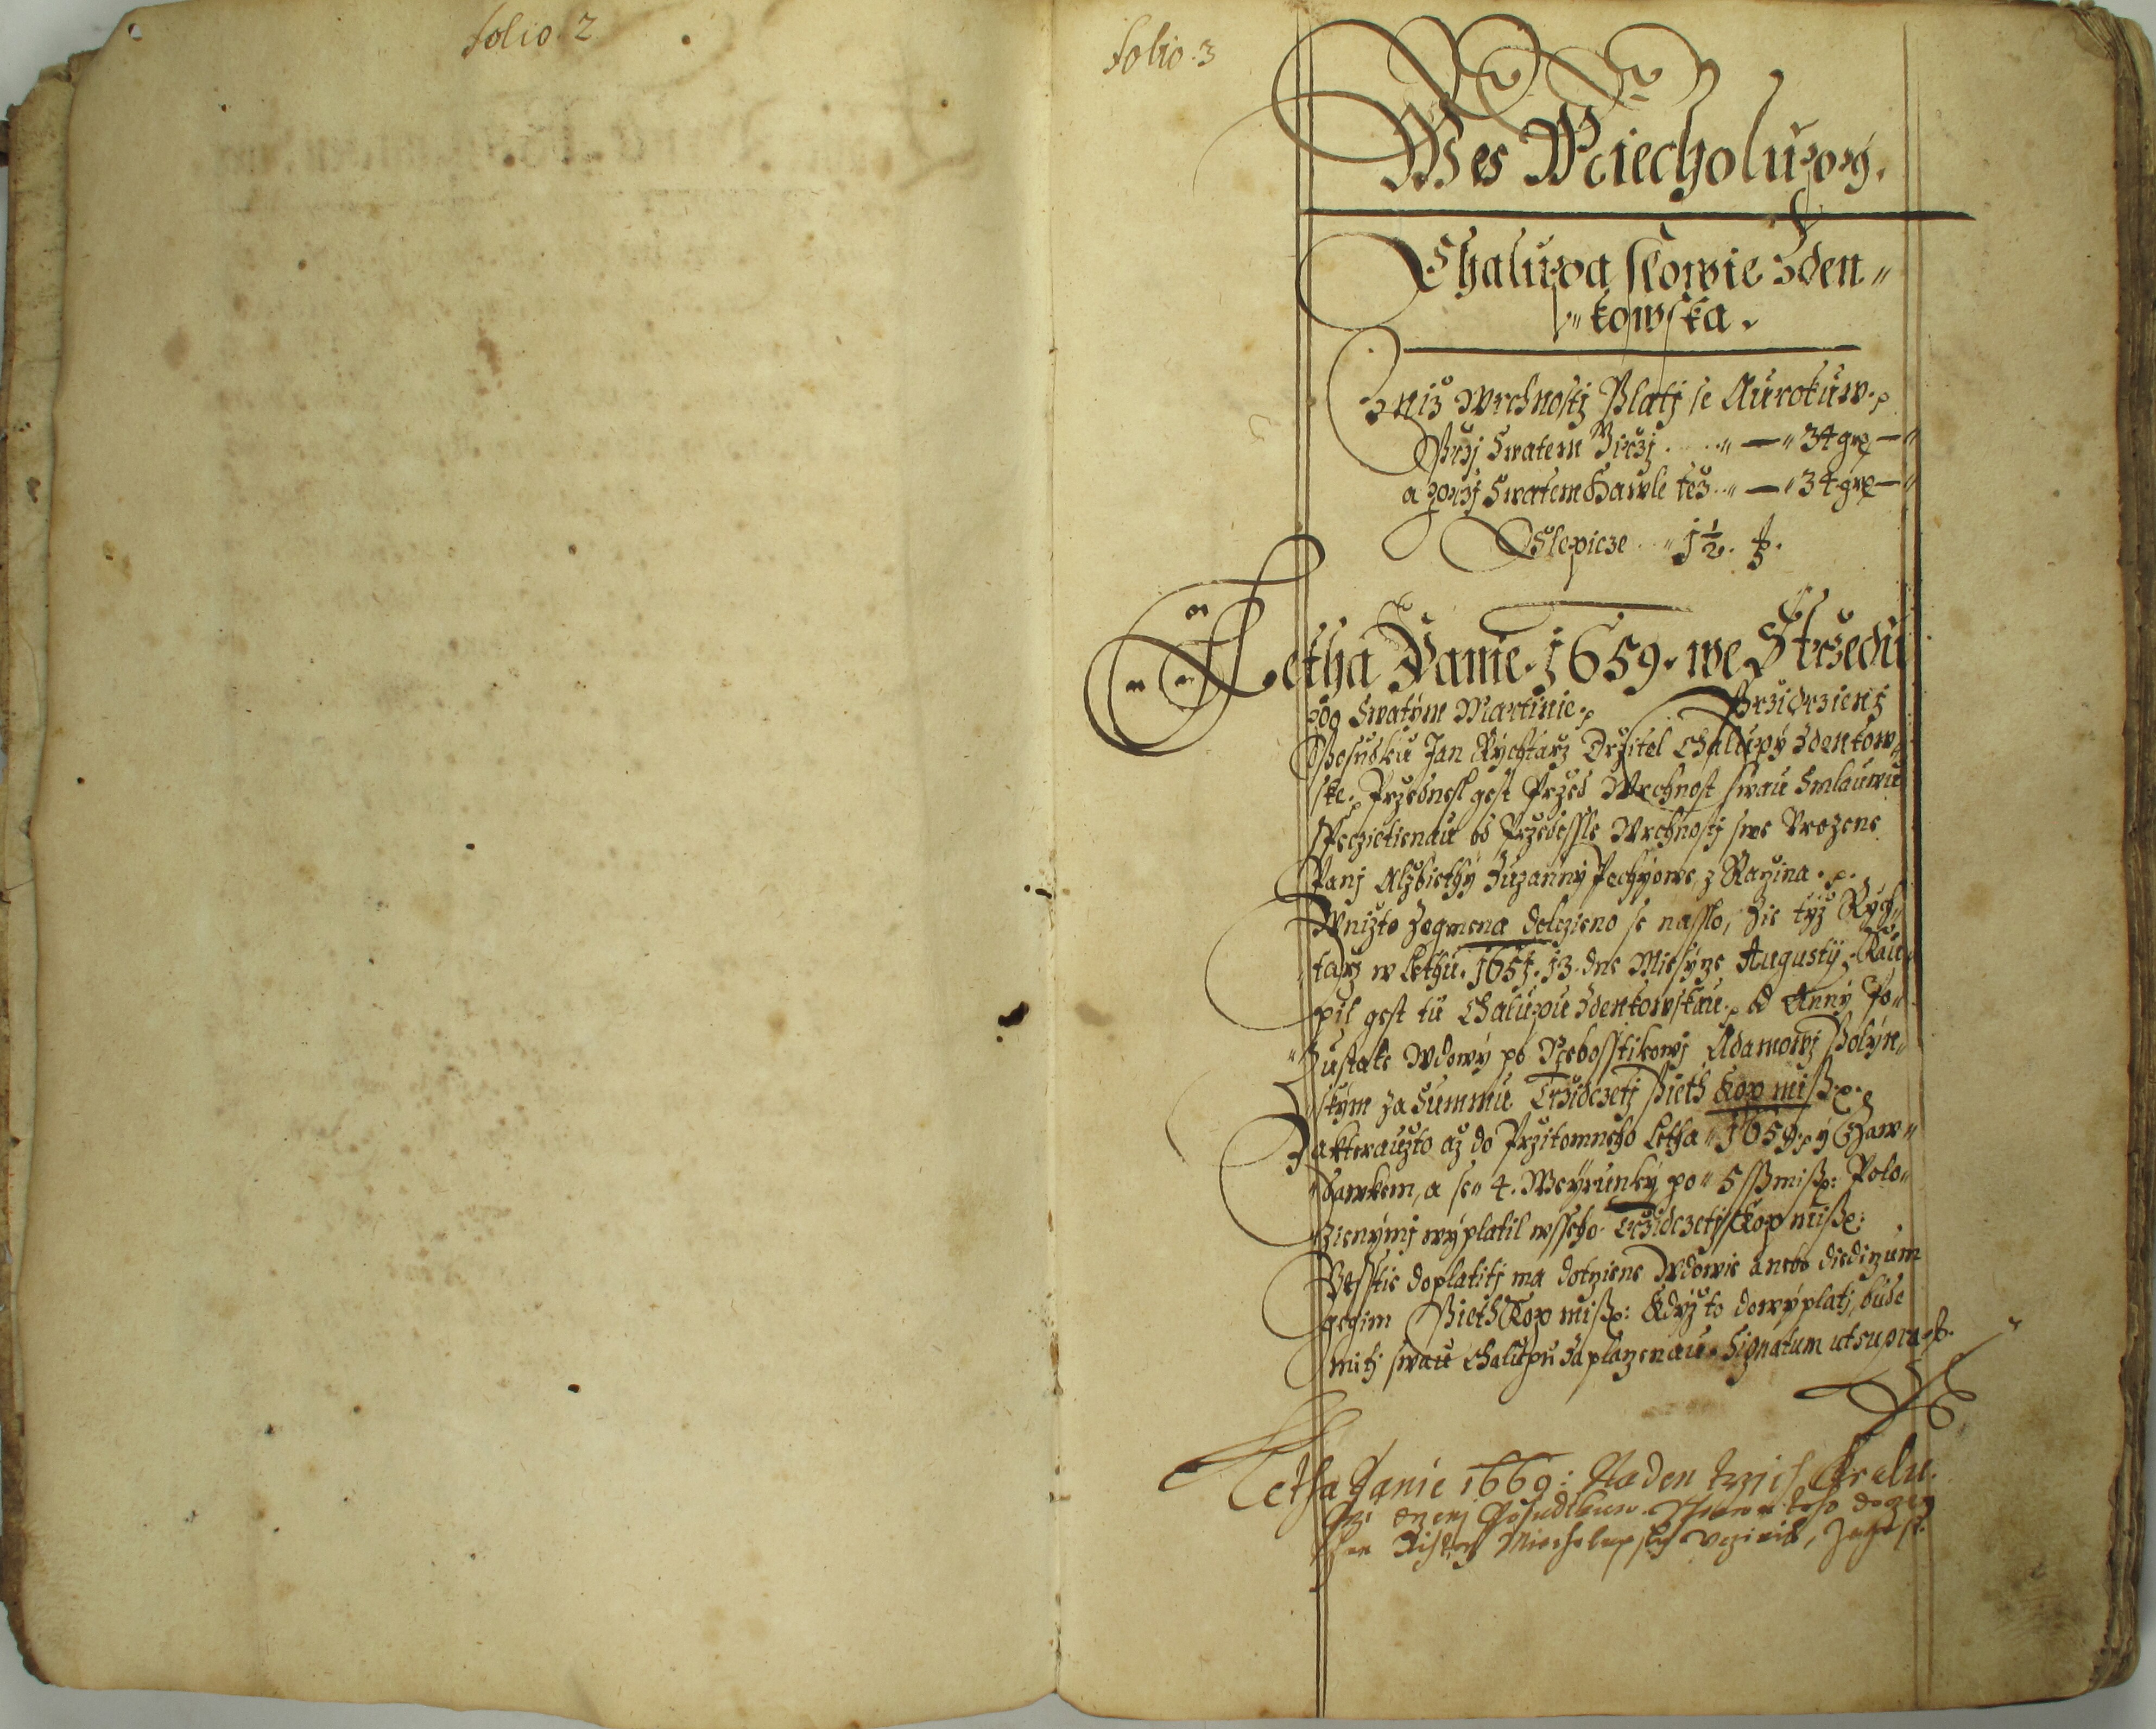 folio 2
folio. 3
Wes Miecholupy.
Chalupa slowie Zden„
„kowska.
Z niž Wrchnostj Platj se Aurokuw. p
Przj Swatem Girzj . . . . „ — „ 34 gr —„
a przj Swatem Hawle též . . „ — „ 34 gr —„
Slepicze . . „ 1 1/2.
Letha Panie. 1659. we Strzedu
po Swatým Martinie. p Przi drzienj
Posudku Jan Rychtarz Držitel Chalupy Zdenkow„
ske. Przednesl gest Przed Wrchnost swau Smlauwu
Peczietienau od Przedessle Wrchnostj swe Urozene
Panj Alžbiethy Zuzanny Pechyowe, z Raczina. p.
W nižto Zegmena dolozieno se nasslo, Zie týž Rych„
„tarz w Lethu. 1651. 13. dne Miesycze Augusty, Kau„
pil gest tu Chalupu Zdenkowskau. p od Anny Po„
„Zustale Wdowy po Nebosstikowj Adamowj Wolyn„
„skym za Summu Trzidczetj Pieth Kop miß. p.
Za kterauzto až do Przitomneho Letha „1659. p y Zaw„
„dawkem, a se „4. Weyrunky po „5 ß miß: Polo„
„zienymj wyplatil wsseho Trzidczetj Kop miß:
Gesstie doplatitj ma dotczene Wdowie anebo diediczum
gegim Pieth Kop miß: Kdyz to dowyplatj, bude
mitj swau Chalupu Zaplaczenau. Signatum ut supra.
Letha Panie 1660: Na den Trzich Kralu.